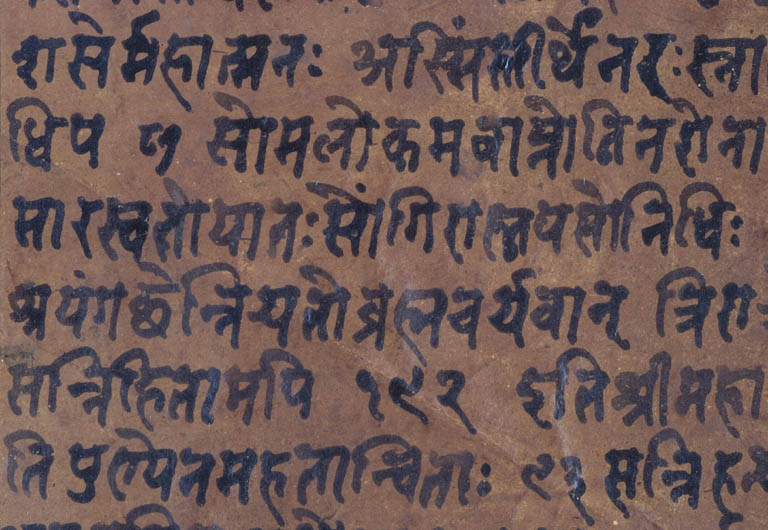 शसेर्महात्मनः अस्मिंस्तीर्थे नरः स्ना
धिप ५ सोमलोकमवाप्नोति नरो ना
सारस्वतोयातः सोंगिरास्तपसो निधिः
श्रयंगछेन्नियतो ब्रह्मचर्यवान् त्रिरा
सन्निहितामपि १९२ इति श्रीमहा
ति पुण्येन महतान्विताः ९३ सन्निह